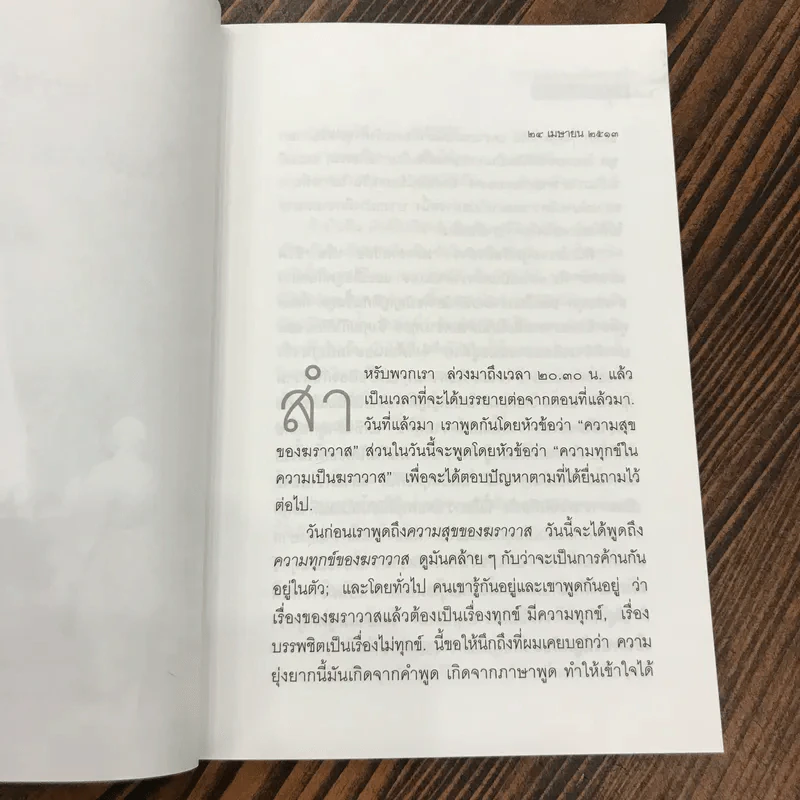 ๒๔ เมษายน ๒๕๑๓
สำหรับพวกเรา ล่วงมาถึงเวลา ๒๐.๓๐ น. แล้ว
เป็นเวลาที่จะได้บรรยายต่อจากตอนที่แล้วมา.
วันที่แล้วมา เราพูดกันโดยหัวข้อว่า “ความสุข
ของฆราวาส” ส่วนในวันนี้จะพูดโดยหัวข้อว่า “ความทุกข์ใน
ความเป็นฆราวาส” เพื่อจะได้ตอบปัญหาตามที่ได้ยื่นถามไว้
ต่อไป.
วันก่อนเราพูดถึงความสุขของฆราวาส วันนี้จะได้พูดถึง
ความทุกข์ของฆราวาส ดูมันคล้าย ๆ กับว่าจะเป็นการค้านกัน
อยู่ในตัว; และโดยทั่วไป คนเขารู้กันอยู่และเขาพูดกันอยู่ ว่า
เรื่องของฆราวาสแล้วต้องเป็นเรื่องทุกข์ มีความทุกข์, เรื่อง
บรรพชิตเป็นเรื่องไม่ทุกข์. นี้ขอให้นึกถึงที่ผมเคยบอกว่า ความ
ยุ่งยากนี้มันเกิดจากคำพูด เกิดจากภาษาพูด ทำให้เข้าใจได้